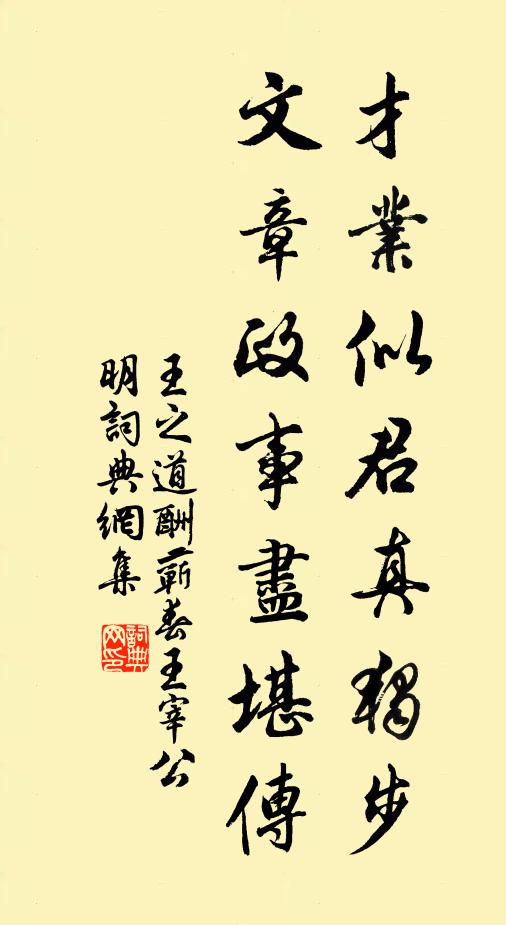 才業似君真獨步
文章政事盡堪傳
王之道酬蘄春王宰公
明詞典網集
詞典
网印